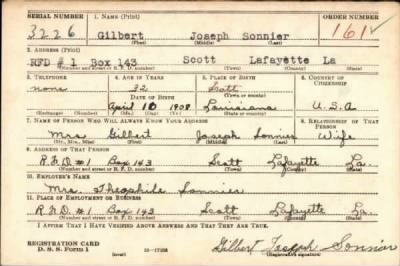 SERIAL NUMBER 1. NAME (Print) ORDER NUMBER
3226 Gilbert Joseph Sonnier 161
(First) (Middle) (Last)
2. ADDRESS (Print)
RFD #1 Box 143 Scott Lafayette La
(Number and street or R. F. D. number) (Town) (County) (State)
3. TELEPHONE 4. AGE IN YEARS 5. PLACE OF BIRTH 6. COUNTRY OF CITIZENSHIP
none 32 Scott
DATE OF BIRTH (Town or county)
April 10 1908 Louisiana U.S.A
(Exchange) (Number) (Mo.) (Day) (Yr.) (State or country)
7. NAME OF PERSON WHO WILL ALWAYS KNOW YOUR ADDRESS 8. RELATIONSHIP OF THAT PERSON
Mrs Gilbert Joseph Sonnier Wife
(Mr., Mrs., Miss) (First) (Middle) (Last)
9. ADDRESS OF THAT PERSON
R.F.D #1 Box 143 Scott Lafayette La.
(Number and street or R. F. D. number) (Town) (County) (State)
10. EMPLOYER'S NAME
Mrs. Theophile Sonnier
11. PLACE OF EMPLOYMENT OR BUSINESS
R.F.D #1 Box 143 Scott Lafayette La.
(Number and street or R. F. D. number) (Town) (County) (State)
I AFFIRM THAT I HAVE VERIFIED ABOVE ANSWERS AND THAT THEY ARE TRUE.
REGISTRATION CARD
D. S. S. Form 1 (over) Gilbert Joseph Sonnier
(Registrant's signature)